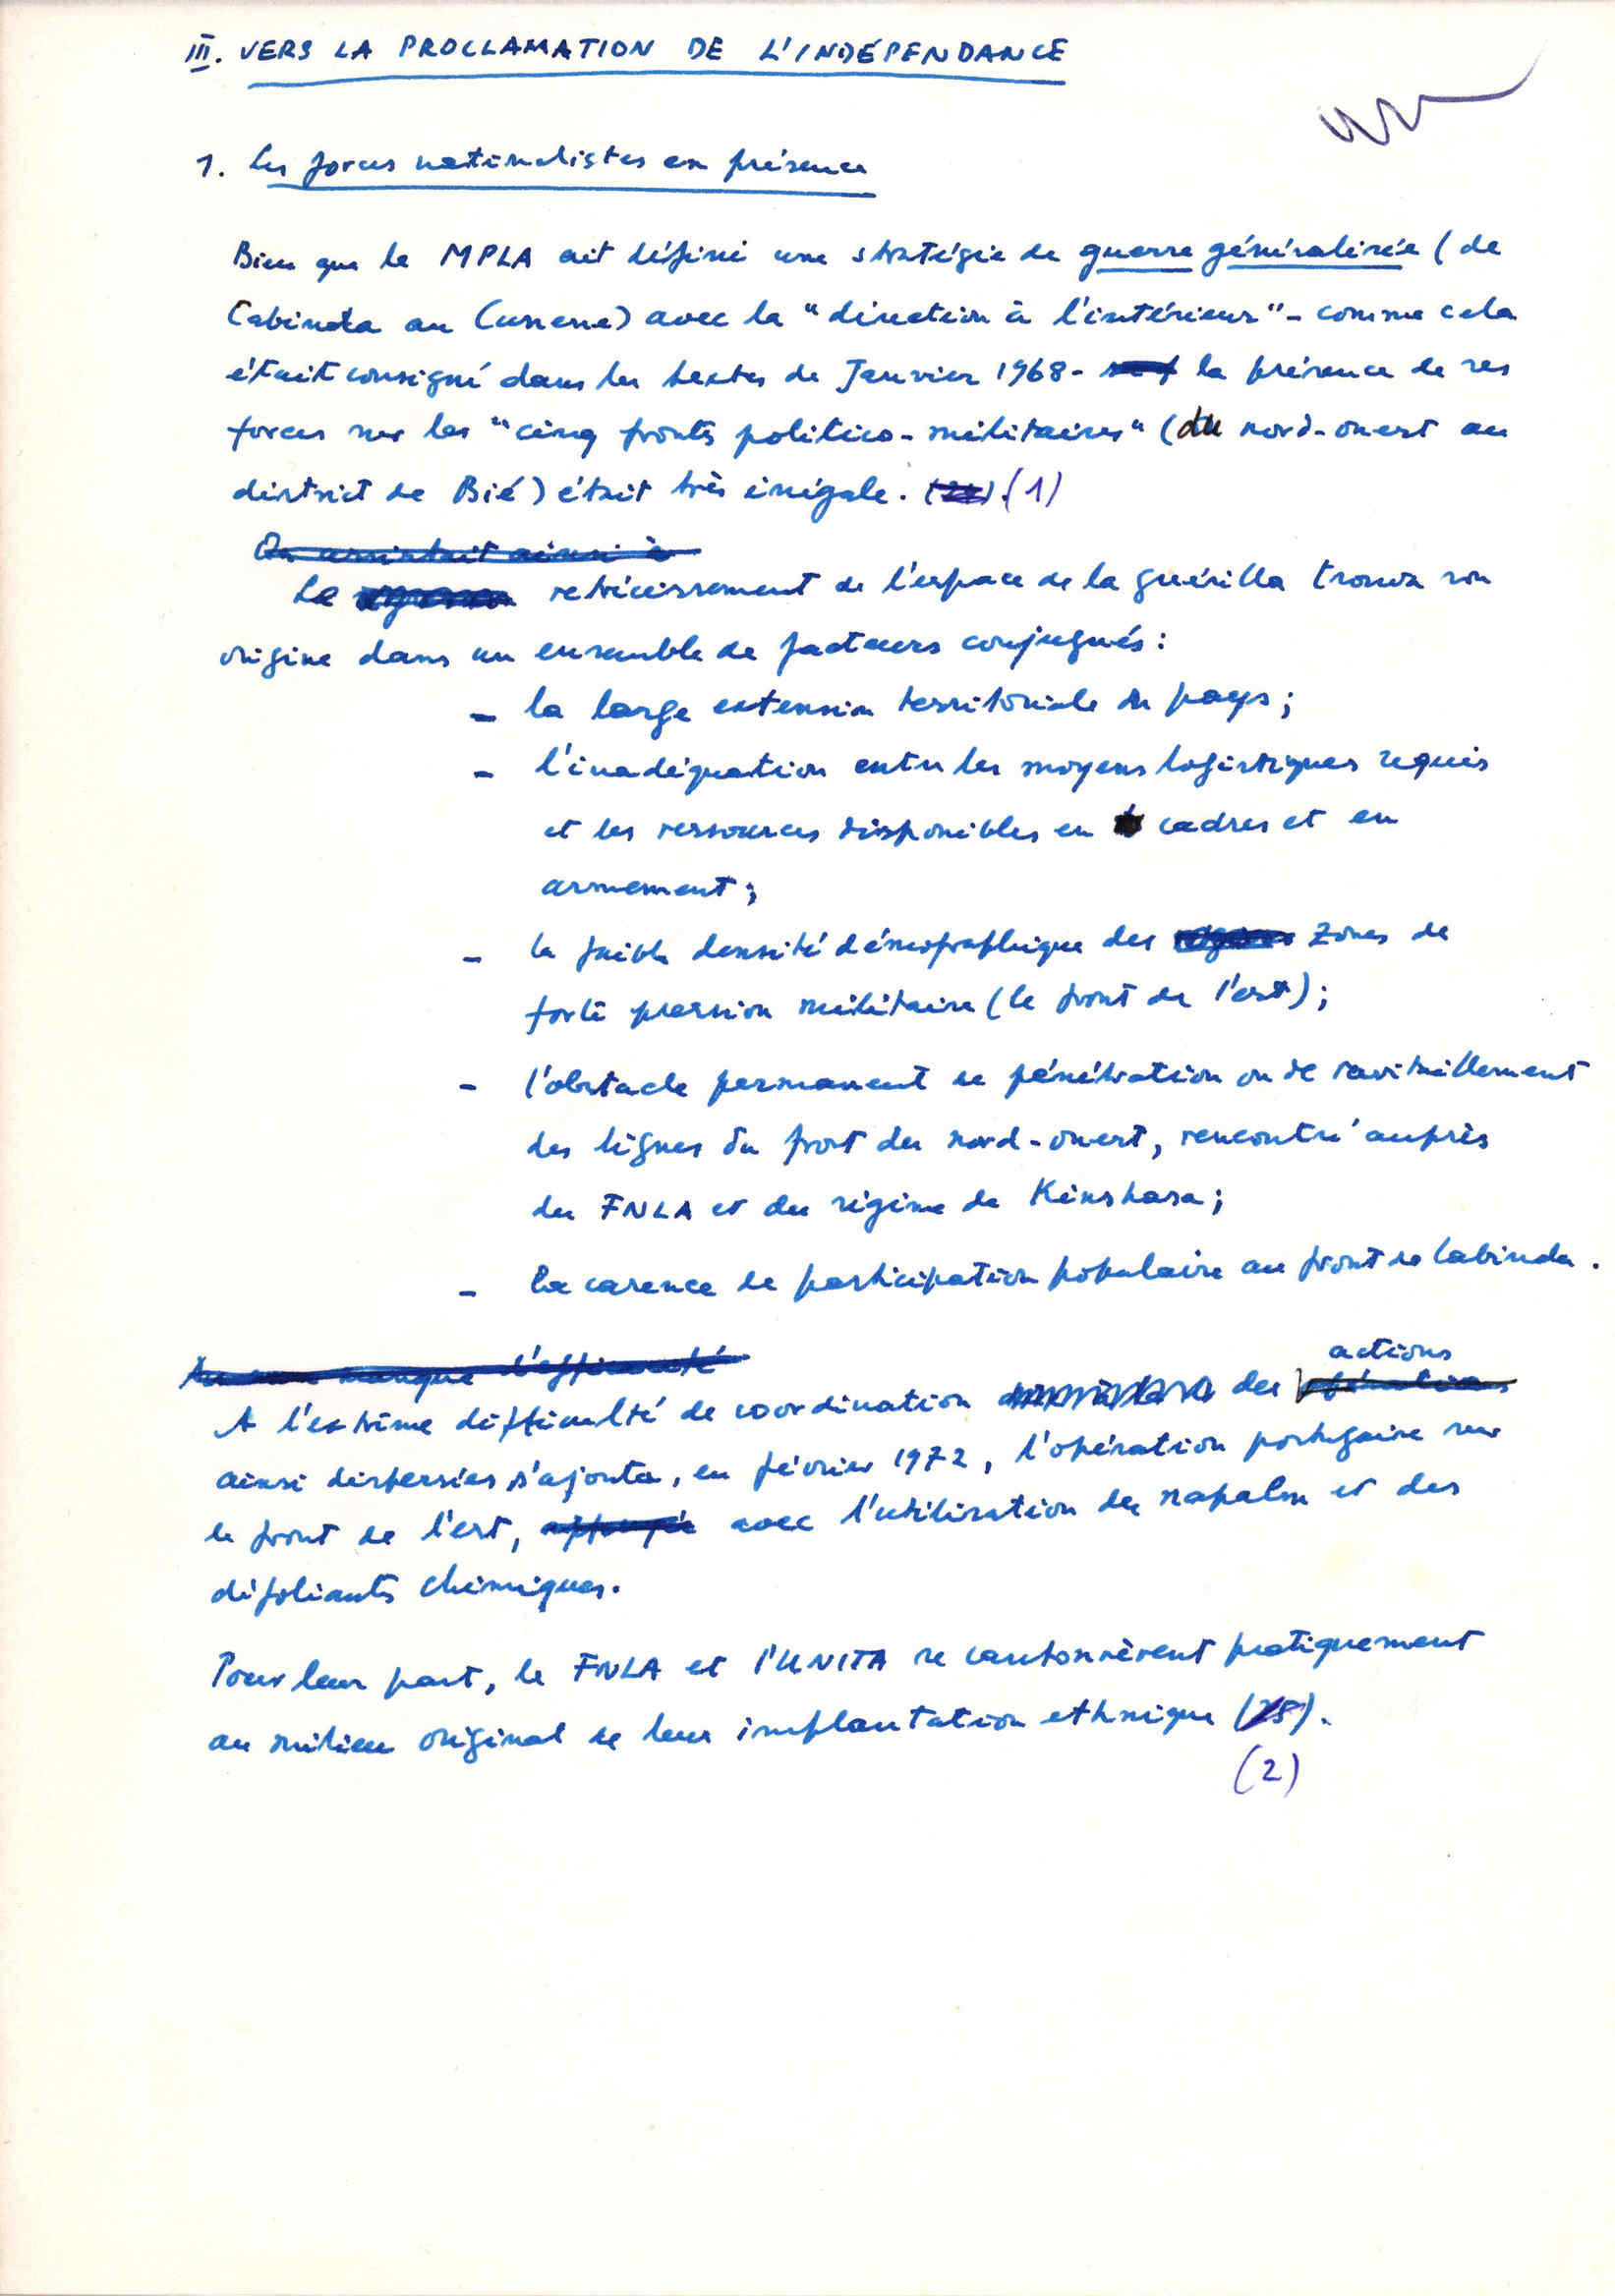 III. VERS LA PROCLAMATION DE L'INDÉPENDANCE
1. Les forces nationalistes en présence
Bien que le MPLA ait défini une stratégie de guerre généralisée (de
Cabinda au Cunene) avec la "direction à l'intérieur" - comme cela
était consigné dans les textes de Janvier 1968 - la présence de ses
forces sur les "cinq fronts politico-militaires" (du nord-ouest au
district de Bié) était très inégale. (1)
On assistait ainsi à
Le retrécissement de l'espace de la guérilla trouva son
origine dans un ensemble de facteurs conjugués :
- la large extension territoriale du pays ;
- l'inadéquation entre les moyens logistiques requis
et les ressources disponibles en cadres et en
armement ;
- la faible densité démographique des zones de
forte pression militaire (le front de l'est) ;
- l'obstacle permanent de pénétration ou de ravitaillement
des lignes du front du nord-ouest, rencontré auprès
du FNLA et du régime de Kinshasa ;
- la carence de participation populaire au front de Cabinda.
manque d'efficacité
actions
A l'extrême difficulté de coordination des opérations
ainsi dispersées s'ajouta, en février 1972, l'opération portugaise sur
le front de l'est, appuyée avec l'utilisation du napalm et des
défoliants chimiques.
Pour leur part, le FNLA et l'UNITA se cantonnèrent pratiquement
au milieu original de leur implantation ethnique (25).
(2)